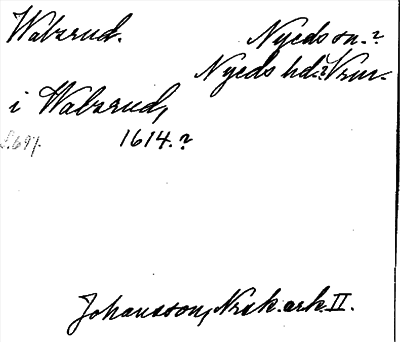 Walzrud.
Nyeds sn.?
Nyeds hd.? Vrm.
i Walzrud,
1614.?
Johansson, Nrsk. ark. II.